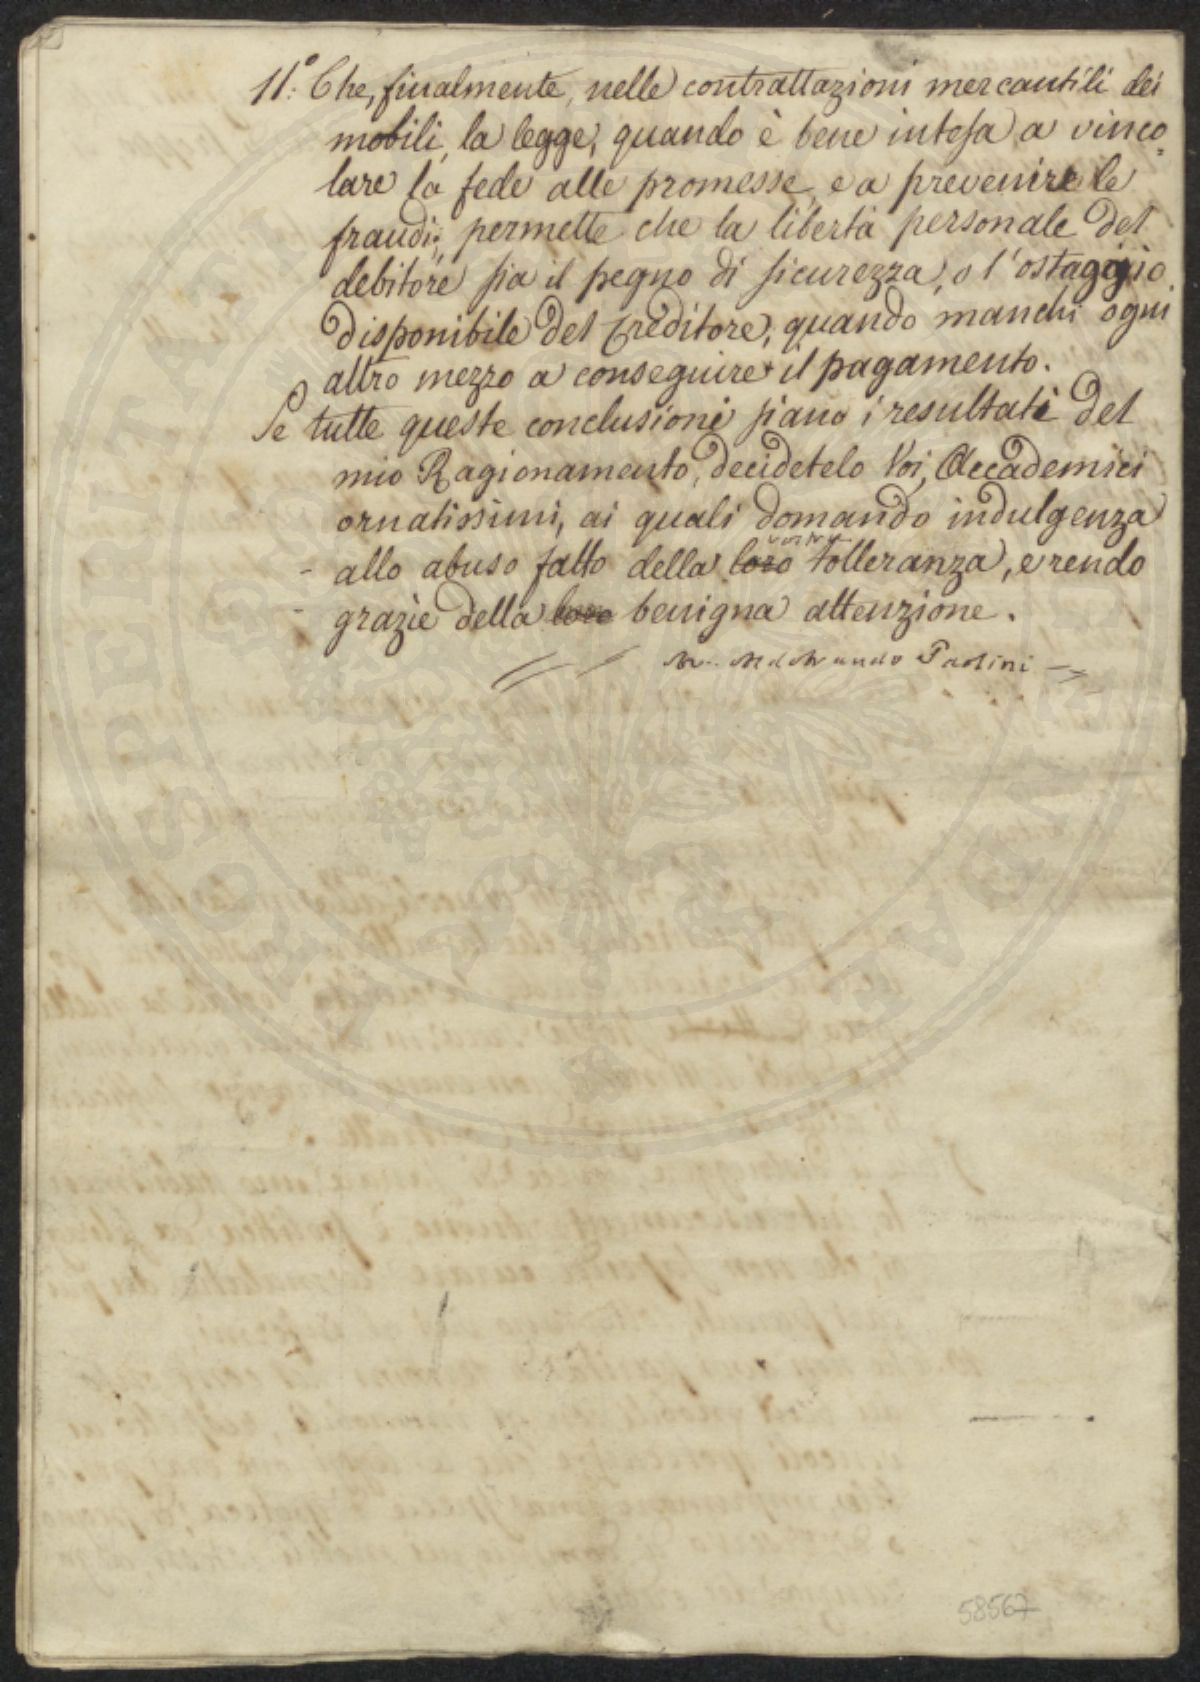 11.° Che, finalmente, nelle contrattazioni mercantili dei
mobili, la legge, quando è bene intesa a vinco=
lare la fede alle promesse, e a prevenire le
fraudi, permette che la libertà personale del
debitore sia il pegno di sicurezza, o l'ostaggio
disponibile del creditore, quando manchi ogni
altro mezzo a conseguire il pagamento.
Se tutte queste conclusioni siano i resultati del
mio Ragionamento, decidetelo Voi, Accademici
ornatissimi, ai quali domando indulgenza
vostra
- allo abuso fatto della loro tolleranza, e rendo
- grazie della loro benigna attenzione.
Aldobrando Paolini
58567
PROSPERITATI